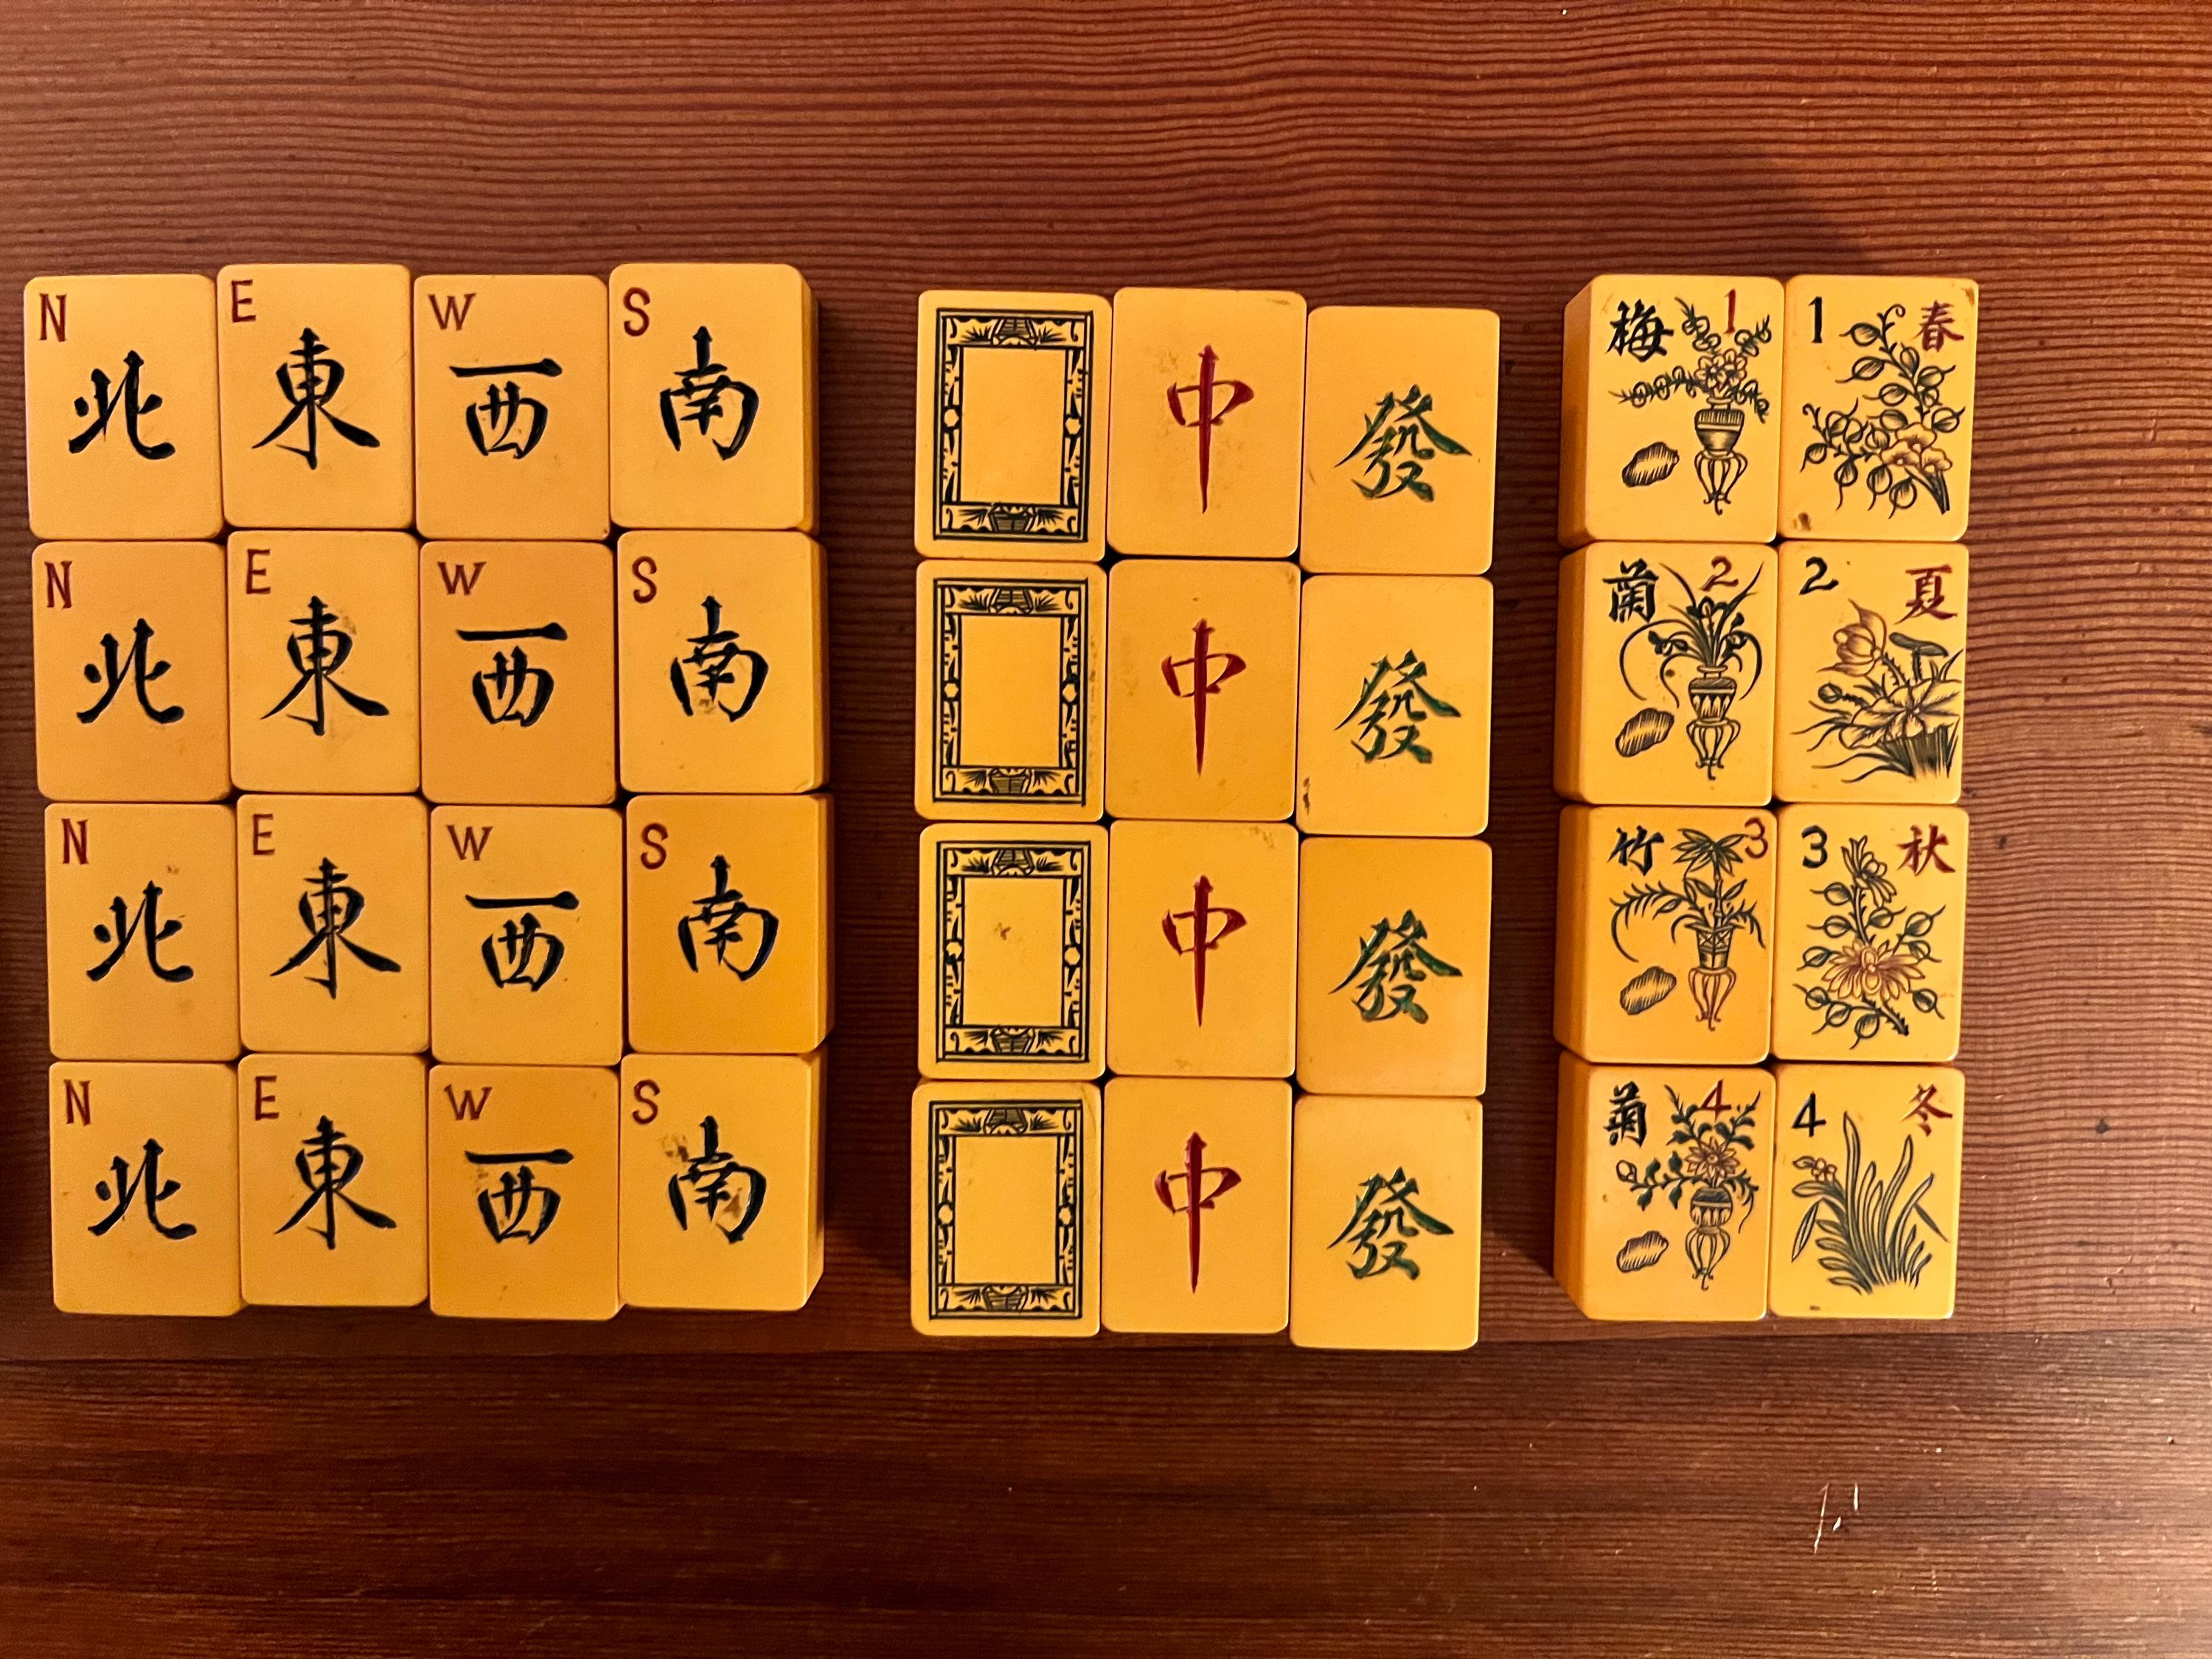 N 北 E 東 W 西 S 南
中 發
梅 1 1 春
N 北 E 東 W 西 S 南
中 發
蘭 2 2 夏
N 北 E 東 W 西 S 南
中 發
竹 3 3 秋
N 北 E 東 W 西 S 南
中 發
菊 4 4 冬